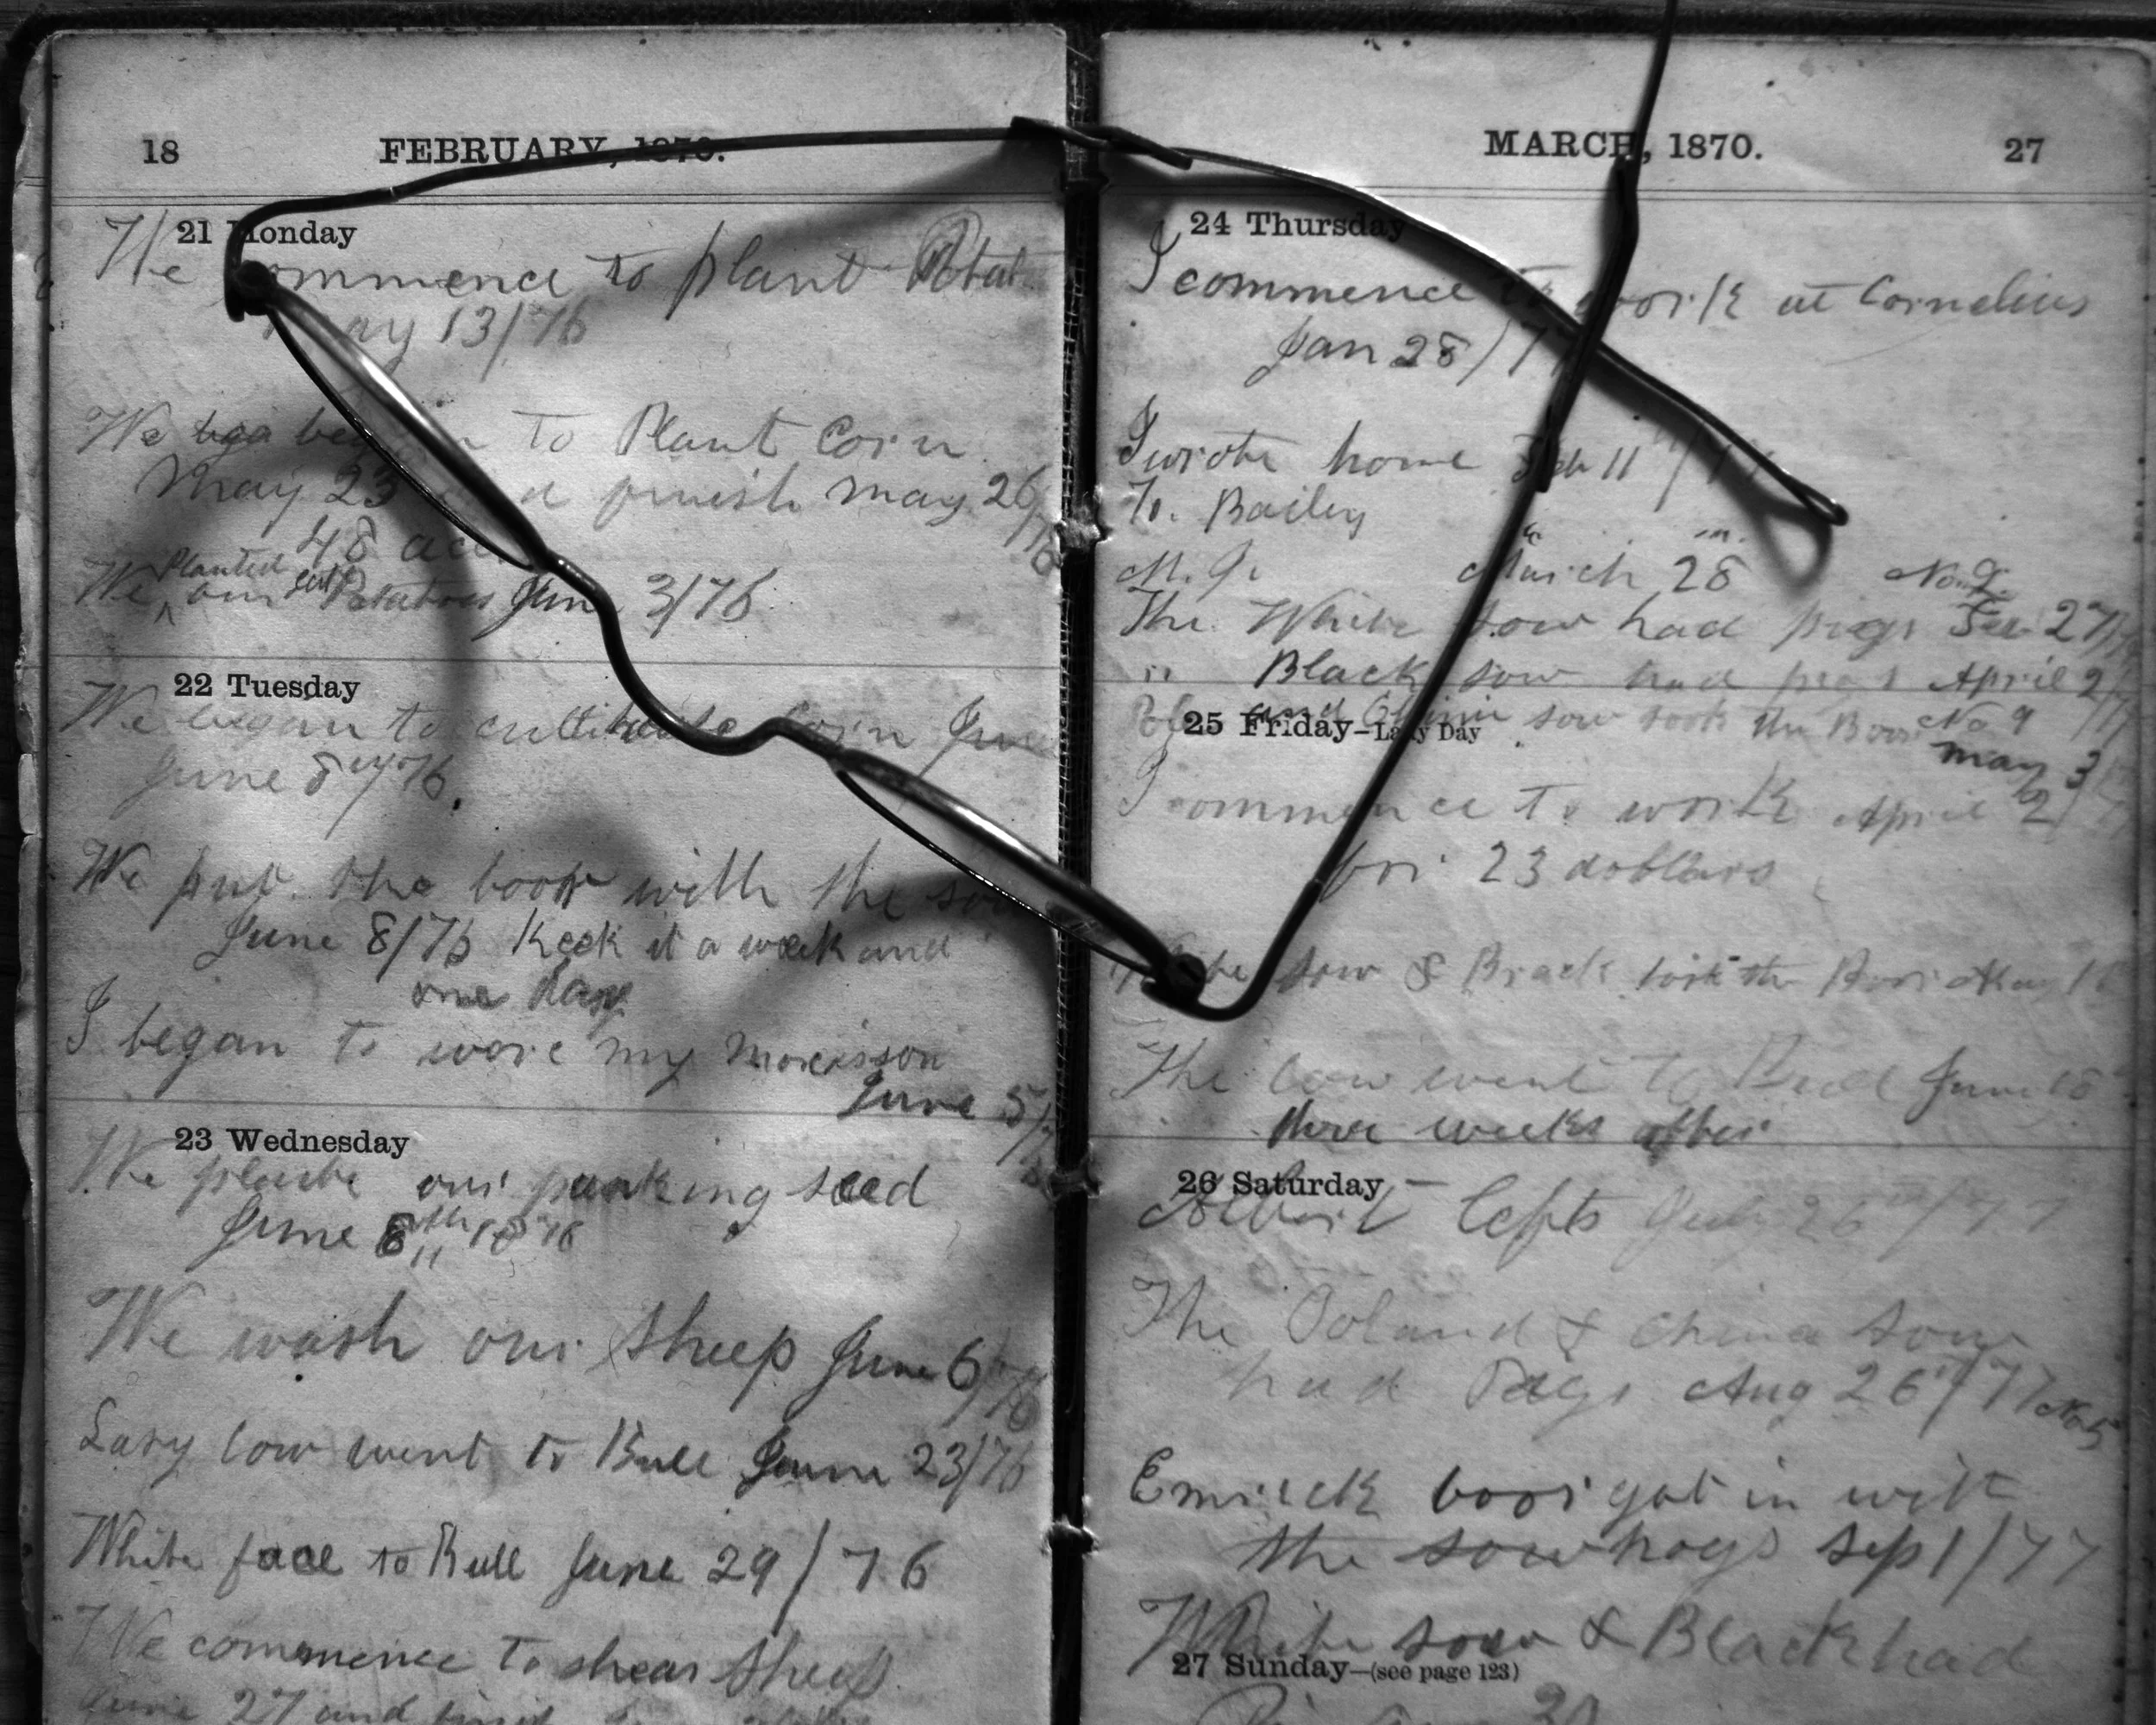 18 FEBRUARY, 1870.
21 Monday
We commence to plant Potat
May 13/76
We bga began to Plant Corn
May 23 and finish May 26/76
48 acc
Planted
We our Potatoes June 3/76
22 Tuesday
We began to cultivate Corn June
June 8 /76.
We put the boar with the sow
June 8/76 Keek it a week and
one day
I began to wore my morcisson
June 5/76
23 Wednesday
We plante our punking seed
June 8th 1876
We wash our Sheep June 6/76
Lasy cow went to Bull June 23/76
White face to Bull June 29/76
We commence to shear Sheep
June 27 and finish
MARCH, 1870. 27
24 Thursday
I commence to work at Cornelius
Jan 28/77
I wrote home Feb 11/77
To. Bailey
M. G. March 28 No 9
The White sow had pigs Feb 27/77
" Black sow had pigs April 2/77
and China sow took the Boar No 9
25 Friday—Lady Day
May 3
I commence to work April 2/77
for 23 dobllars
White sow & Black took the Boar May 16
The cow went to Bull June 18
three weeks after
26 Saturday
Albert lefts July 26th/77
The Poland & China Sow
had Pigs Aug 26th/77 No 5
Emrick boar got in with
the sow hogs Sep 1/77
White sow & Black had
27 Sunday—(see page 123)